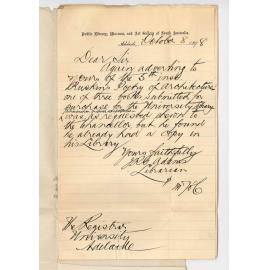 Public Library, Museum, and Art Gallery of South Australia.
Adelaide, October 8 1898
Dear Sir
Again adverting to
yours of the 5th inst
Ruskin's Poetry of Architecture
one of three books submitted for
purchase for the University Library
was as requested shown to
the Chancellor but he found
he already had a copy in
his Library
Yours faithfully
Adams
Librarian
The Registrar
University
Adelaide